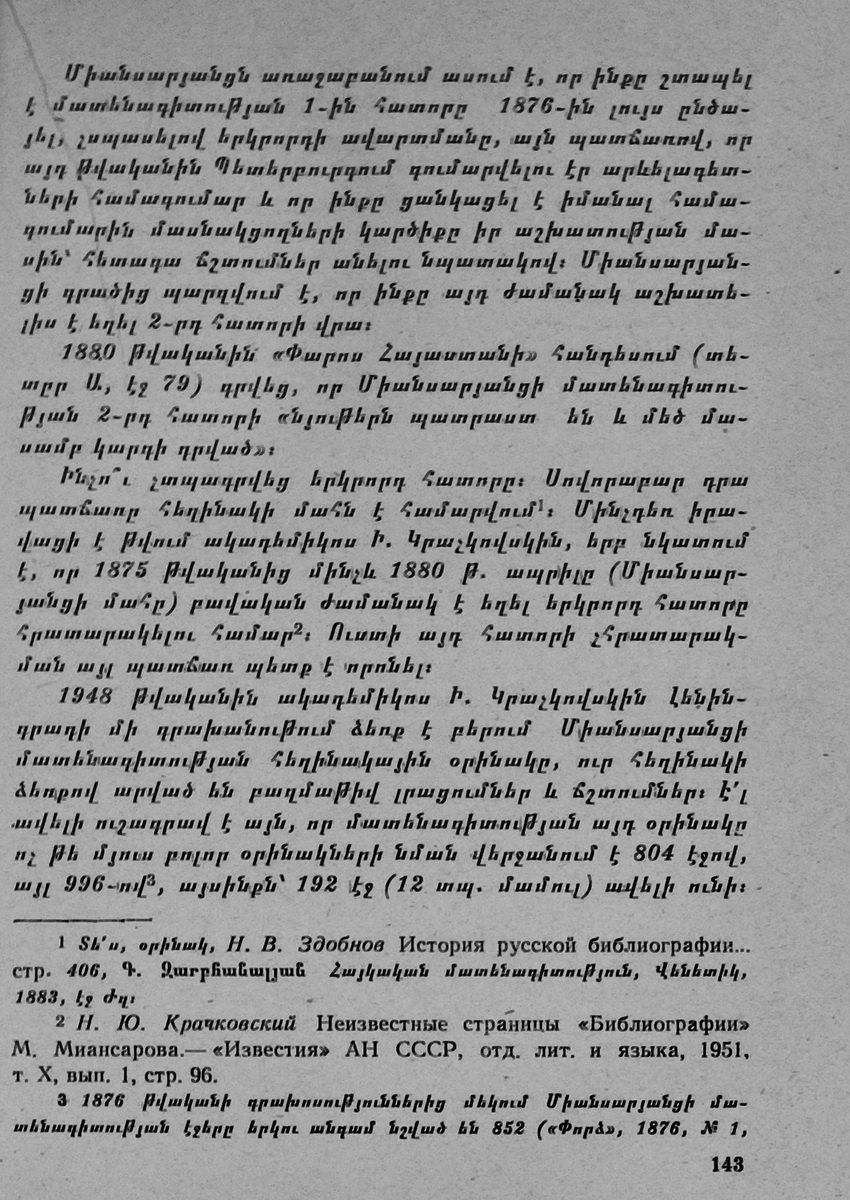 Միանսարյանցն առաջաբանում ասում է, որ ինքը շտապել
է մատենագիտության 1-ին հատորը 1876-ին լույս ընծա-
յել, չսպասելով երկրորդի ավարտմանը, այն պատճառով, որ
այդ թվականին Պետերբուրգում գումարվելու էր արևելագետ-
ների համագումար և որ ինքը ցանկացել է իմանալ համա-
գումարին մասնակցողների կարծիքը իր աշխատության մա-
սին՝ հետագա ճշտումներ անելու նպատակով։ Միանսարյան-
ցի գրածից պարզվում է, որ ինքը այդ ժամանակ աշխատե-
լիս է եղել 2-րդ հատորի վրա։
1880 թվականին «Փարոս Հայաստանի» հանդեսում (տե-
տրը Ա, էջ 79) գրվեց, որ Միանսարյանցի մատենագիտու-
թյան 2-րդ հատորի «նյութերն պատրաստ են և մեծ մա-
սամբ կարգի դրված»։
Ինչո՞ւ չտպագրվեց երկրորդ հատորը։ Սովորաբար դրա
պատճառը հեղինակի մահն է համարվում¹։ Մինչդեռ իրա-
վացի է թվում ակադեմիկոս Ի. Կրաչկովսկին, երբ նկատում
է, որ 1875 թվականից մինչև 1880 թ. ապրիլը (Միանսար-
յանցի մահը) բավական ժամանակ է եղել երկրորդ հատորը
հրատարակելու համար²։ Ուստի այդ հատորի չհրատարակ-
ման այլ պատճառ պետք է որոնել։
1948 թվականին ակադեմիկոս Ի. Կրաչկովսկին Լենին-
գրադի մի գրախանութում ձեռք է բերում Միանսարյանցի
մատենագիտության հեղինակային օրինակը, ուր հեղինակի
ձեռքով արված են բազմաթիվ լրացումներ և ճշտումներ։ Է՛լ
ավելի ուշագրավ է այն, որ մատենագիտության այդ օրինակը
ոչ թե մյուս բոլոր օրինակների նման վերջանում է 804 էջով,
այլ 996-ով³, այսինքն՝ 192 էջ (12 տպ. մամուլ) ավելի ունի։
1 Տե՛ս, օրինակ, Н. В. Здобнов История русской библиографии...
стр. 406, Գ. Զարբհանալյան Հայկական մատենագիտություն, Վենետիկ,
1883, էջ ԺԳ։
2 И. Ю. Крачковский Неизвестные страницы «Библиографии»
М. Миансарова.— «Известия» АН СССР, отд. лит. и языка, 1951,
т. X, вып. 1, стр. 96.
3 1876 թվականի գրախոսություններից մեկում Միանսարյանցի մա-
տենագիտության էջերը երկու անգամ նշված են 852 («Փորձ», 1876, № 1,
143